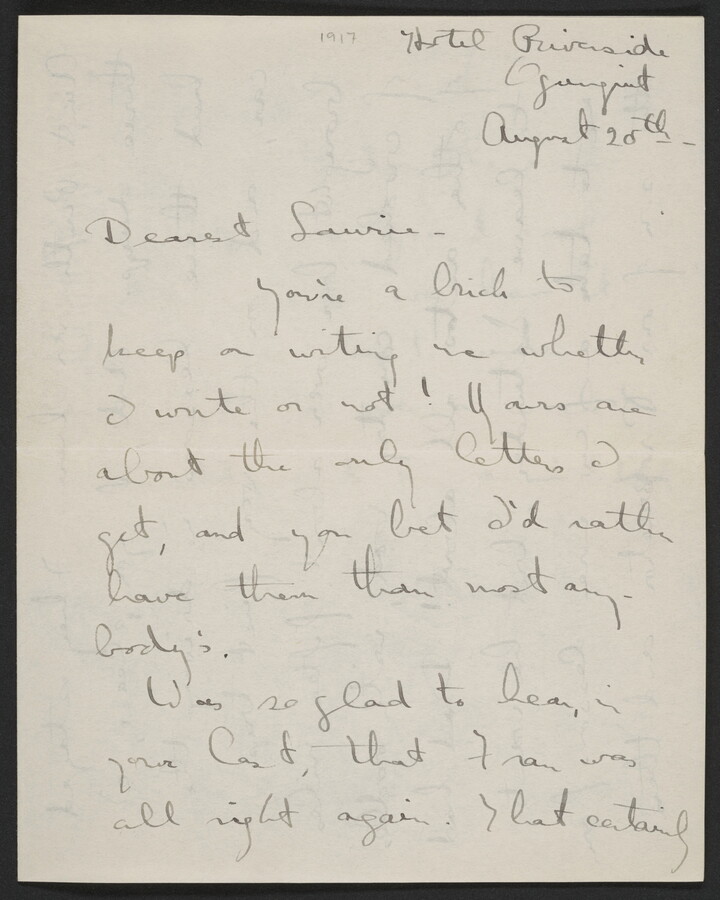 1917
Hotel Riverside
Ogunquit
August 20th -
Dearest Laurie -
You're a brick to
keep on writing me whether
I write or not! Yours are
about the only letters I
get, and you bet I'd rather
have them than most any-
body's.
Was so glad to hear, in
your last, that Fran was
all right again. That certainly